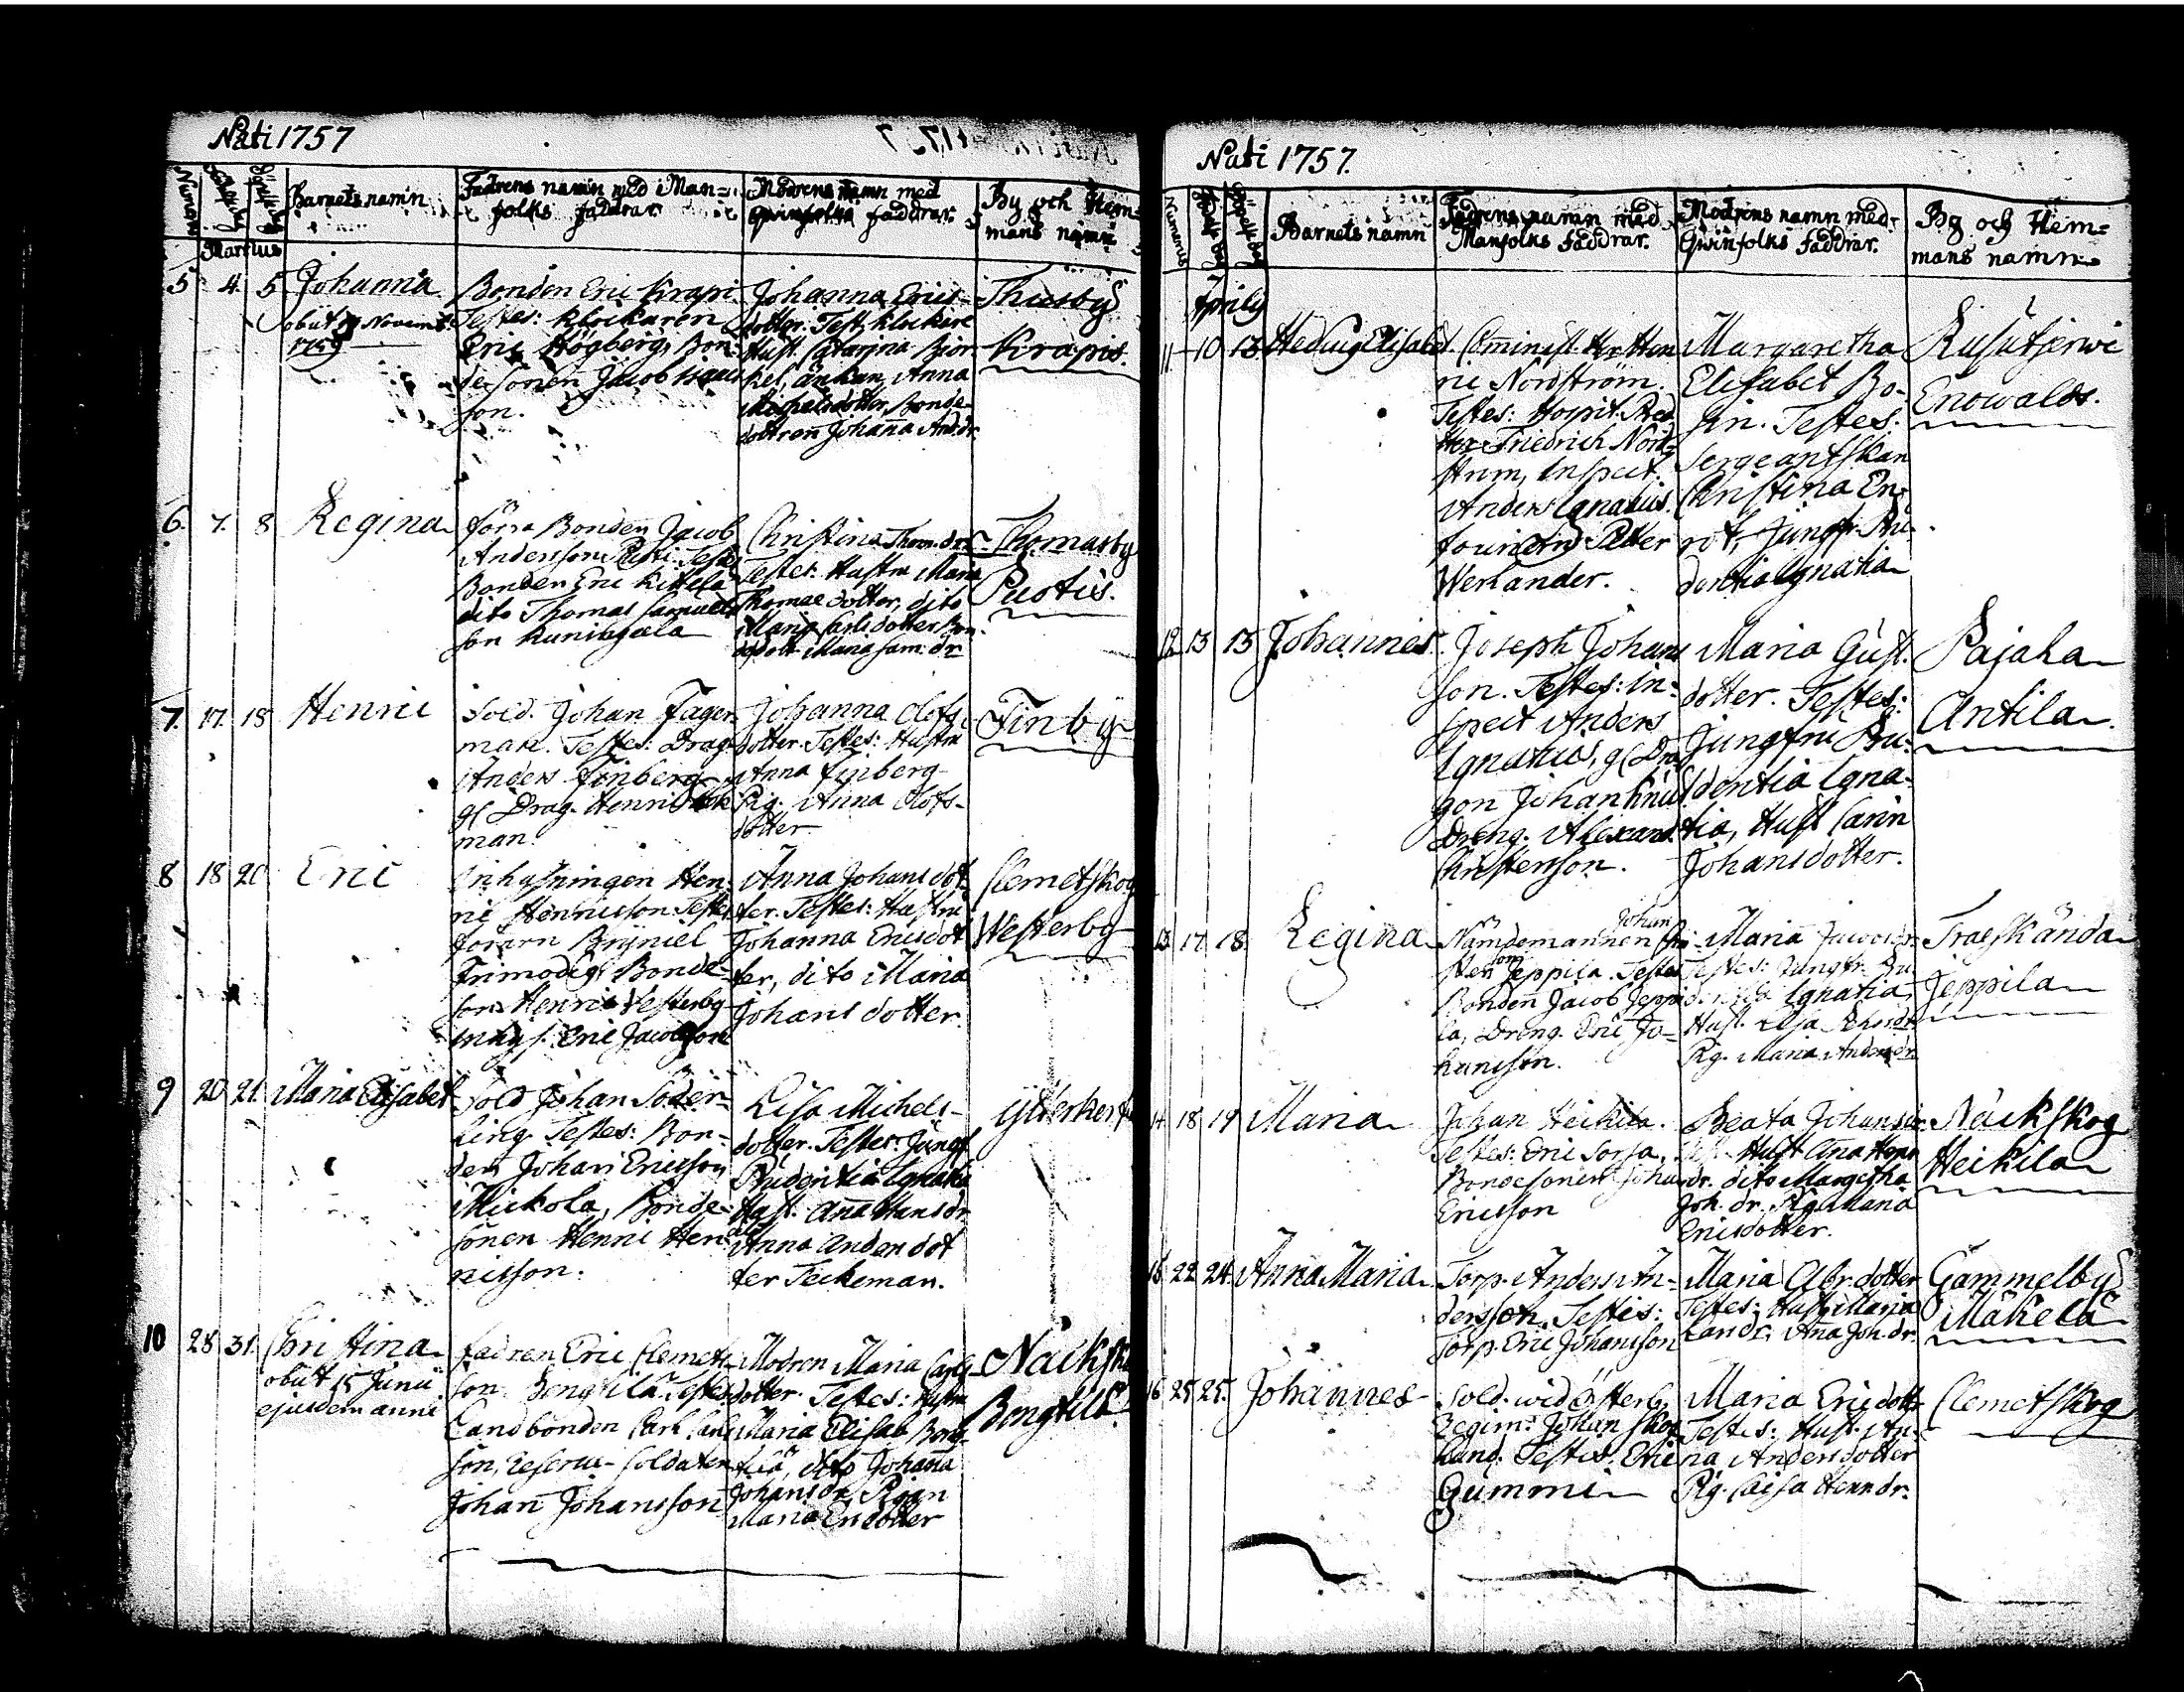 Nati 1757
Numerus
Barnets namn
Fadrens namn med Man=
folks faddrar.
Modrens namn med
Qwinfolks faddrar.
By och Hem=
mans namn
Martius
5 4 5 Johanna
obiit 19 Novemb.
1759
Bonden Eric Krapi
Testes: Klockaren
Eric Högberg, Bon-
desonen Jacob Isaacs
son.
Johanna Erics-
dotter. Test. Klockare
Hust. Catarina Biör
kel, änkan Anna
Michelsdotter, Bonde-
dottren Johana And.dr
Thusby
Krapis.
6. 7. 8 Regina
förra Bonden Jacob
Andersson Testes
Bonden Eric Kittela
dito Thomas Samuels
son Kuningala
Christina Thom. dr.
Testes. Hustru Maria
Thomæ dotter, dito
Maria Carls dotter Bon-
dedott. Maria Sam: dr
Thomasby
7. 17. 18 Henric
Sold. Johan Fager-
man. Testes: Drag.
Anders Finberg
gl Drag. Henric
man.
Johanna Olofs
dotter. Testes: Hustru
Anna Finberg
Pig. Anna Olofs-
dotter
Finby
8 18 20 Eric
Inhysningen Hen-
ric Henricsson. Testes
förarn Bryniel
Frimodig, Bonde-
son Henric Westerby
Inhys. Eric Jacobsson
Anna Johans dot-
ter. Testes: Hustru
Johanna Ericsdot
ter, dito Maria
Johans dotter.
Clemetskog
Westerby
9 20 21. Maria Elisabet
Sold Johan Söder-
ling. Testes: Bon-
den Johan Ericsson
Mickola, Bonde-
sonen Henric Hen-
ricsson.
Lisa Michels-
dotter. Testes: Jungf
Prudentia Ignatia
Hust. Ana Hans dr
Anna Anders dot
ter Teckeman.
10 28 31. Christina
obiit 15 Junii
ejusdem anni
fadren Eric Clemets-
son Bengtilä. Testes
Landbonden Carl Carls
son, Reserve-Soldaten
Johan Johansson
Modren Maria Carls-
dotter. Testes: Hustru
Maria Elisab. Beng-
tilä, dito Johana
Johans dr. Pigan
Maria Ericsdotter
Näcksk
Nati 1757.
Numerus
Barnets namn
Fadrens namn med
Manfolks faddrar.
Modrens namn med
Qwinfolks faddrar.
By och Hem=
mans namn
Aprilis
11 10 13 Hedwig Elisabet.
Comminist. Hr Hen
ric Nordström.
Testes: Hospit. Pred.
Herr Friedrich Nord-
ström, Inspect.
Anders Ignatius.
Petter
Werlander.
Margaretha
Elisabet Bo-
Testes:
Sergeantskan
Christina En-
rot, Jungfr. Pru-
dentia Ignatia
Rusutjerwi
Enewalds.
12 13 13 Johannes.
Joseph Johans
son. Testes: In-
spect Anders
Ignatius, gl Dra
gon Johan Knus
Dreng. Alexand.
Christerson.
Maria Gust.
dotter. Testes:
Jungfru Pru-
dentia Igna-
tia, Hust Carin
Johansdotter.
Pajala
Antila
13 17. 18. Regina
Johan
Nämdemannen
Jeppila. Testes
Bonden Jacob Jeppi
la, Dreng. Eric Jo-
hansson.
Maria Jacobs dr.
Testes: Jungfr. Pru
dentia Ignatia,
Hust. Lisa
Pig. Maria Anders dr
Traeskända
Jeppila
14 18 19 Maria
Johan Heikila.
Testes: Eric Sorsa,
Bondesonen Johan
Ericsson
Beata Johans dr.
Hust Ana Henr
dr. dito Margetha
Joh. dr. Pig. Maria
Ericsdotter.
Näckskog
Heikila
15 22 24. Anna Maria
Torp. Anders An-
dersson. Testes:
Torp. Eric Johansson
Maria Abr. dotter
Testes: Hust. Maria
Ana Joh. dr.
Gammelby
Mäkelä
16 25 25. Johannes
Sold. wid Österb.
Regim: Johan Skog
lund. Testes. Eric
Gummi
Maria Ericsdotter
Testes: Hust. An-
na Anders dotter
Pig. Caisa Henr dr.
Clemetskog